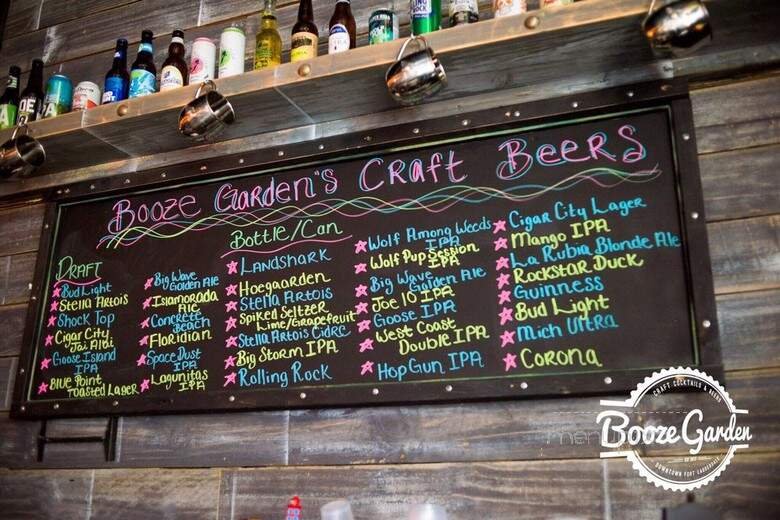 Booze Garden's Craft Beers
Draft
Bud Light
Stella Artois
Shock Top
Cigar City
Jai Alai
Goose Island
IPA
Blue Point
Toasted Lager
Big Wave
Golden Ale
Islamorada
Ale
Concrete
Beach
Floridian
Space Dust
IPA
Lagunitas
IPA
Bottle/Can
Landshark
Hoegaarden
Stella Artois
Spiked Seltzer
Lime/Grapefruit
Stella Artois Cidre
Big Storm IPA
Rolling Rock
Wolf Among Weeds
IPA
Wolf Pup Session
IPA
Big Wave
Golden Ale
Joe IO IPA
Goose IPA
West Coast
Double IPA
Hop Gun IPA
Cigar City Lager
Mango IPA
La Rubia Blonde Ale
Rockstar Duck
Guinness
Bud Light
Mich Ultra
Corona
CRAFT COCKTAILS & BEERS
Booze Garden
DOWNTOWN FORT LAUDERDALE